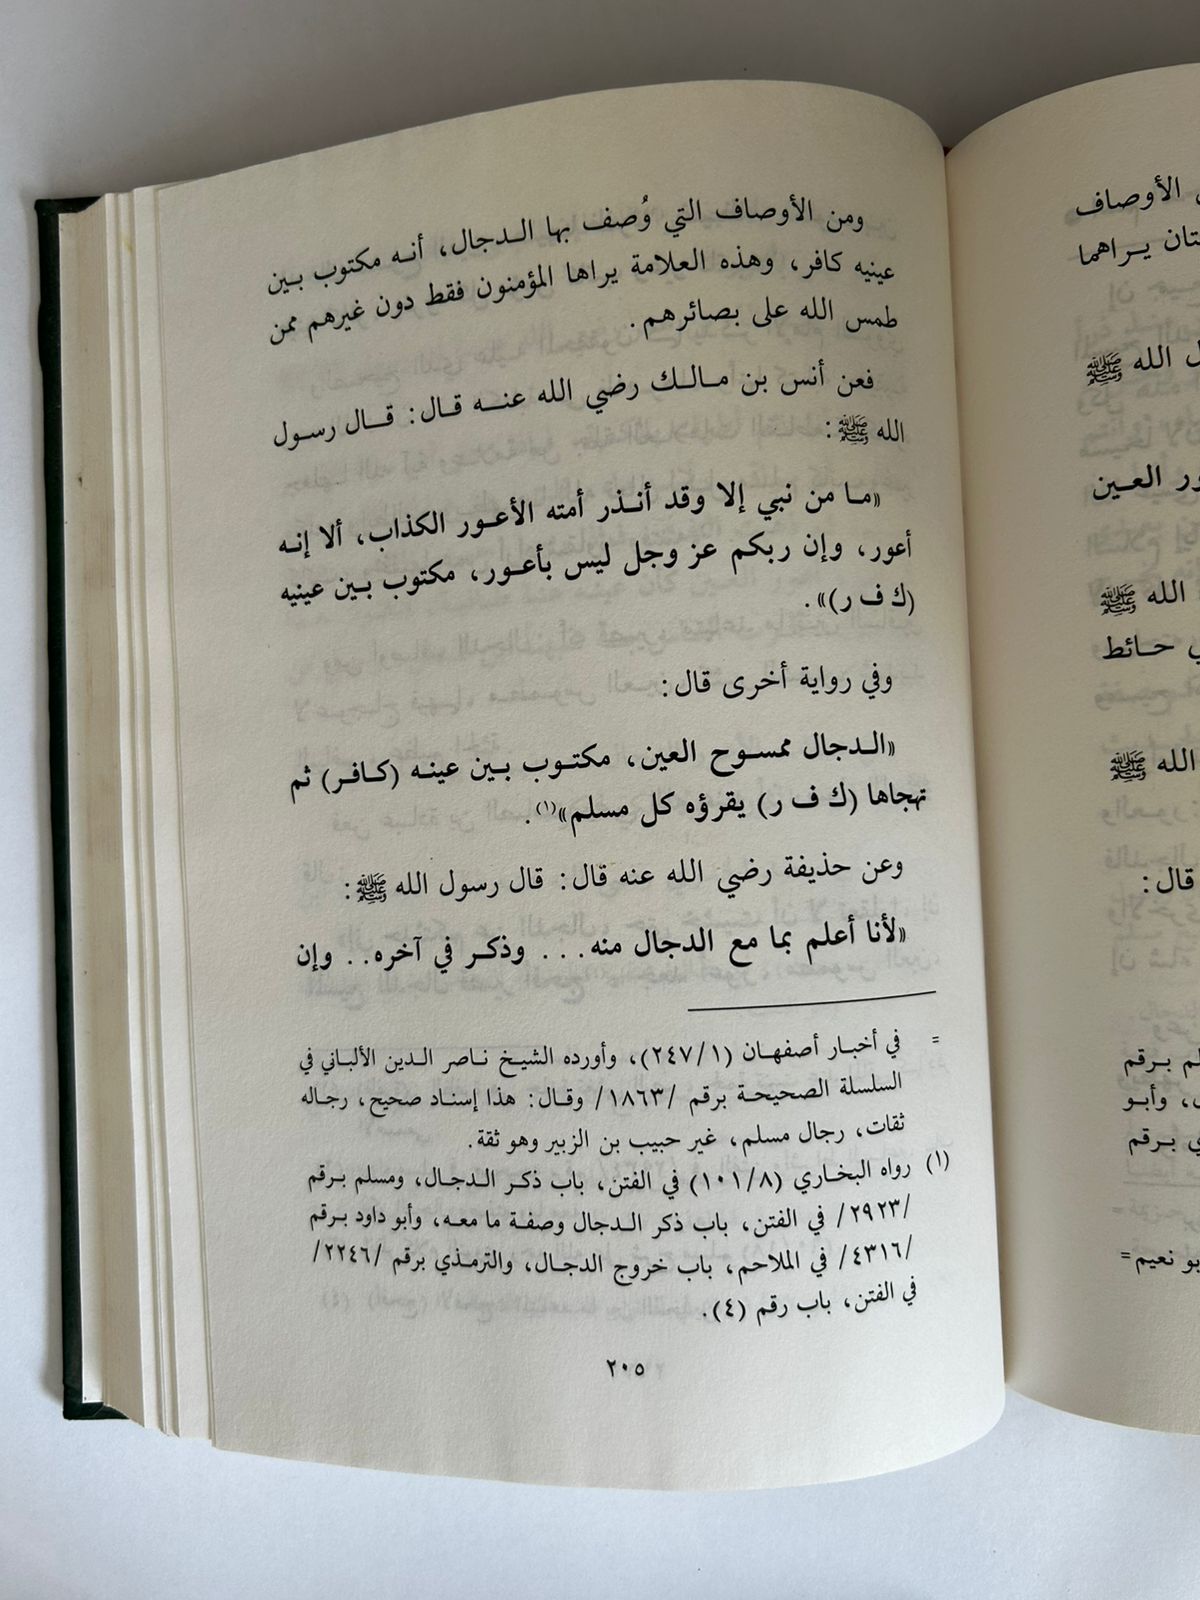 ومن الأوصاف التي وُصف بها الـدجال، أنـه مكتوب بـين
عينيه كافر، وهذه العلامة يراها المؤمنون فقط دون غيرهم ممن
طمس الله على بصائرهم.
فعن أنس بن مـالـك رضي الله عنـه قـال: قـال رسـول
الله ﷺ:
«مـا من نبي إلا وقد أنـذر أمته الأعـور الكذاب، ألا إنـه
أعور، وإن ربكم عز وجل ليس بأعـور، مكتوب بـين عينيه
(ك ف ر)».
وفي رواية أخرى قال:
«الـدجال ممسوح العين، مكتـوب بـين عينـه (كـافـر) ثم
تهجاها (ك ف ر) يقرؤه كل مسلم»(١).
وعن حذيفة رضي الله عنه قال: قال رسول الله ﷺ:
«لأنا أعلم بما مع الدجال منه... وذكـر في آخره.. وإن
= في أخبـار أصفهـان (١/٢٤٧)، وأورده الشيـخ ناصـر الـدين الألبـاني في
السلسلة الصحيحـة برقم /١٨٦٣/ وقـال: هذا إسنـاد صحيح، رجـاله
ثقات، رجال مسلم، غير حبيب بن الزبير وهو ثقة.
(١) رواه البخـاري (٨/١٠١) في الفتن، باب ذكـر الـدجـال، ومسلم بـرقم
/٢٩٢٣/ في الفتن، باب ذكر الـدجال وصفـة ما معـه، وأبو داود بـرقم
/٤٣١٦/ في الملاحم، باب خروج الدجـال، والترمـذي برقم /٢٢٤٦/
في الفتن، باب رقم (٤).
٢٠٥
الأوصاف
يـراهما
الله ﷺ
ـور العـين
الله ﷺ
حـائط
الله ﷺ
قال:
بـرقم
وأبـو
بـرقم
نعيم=